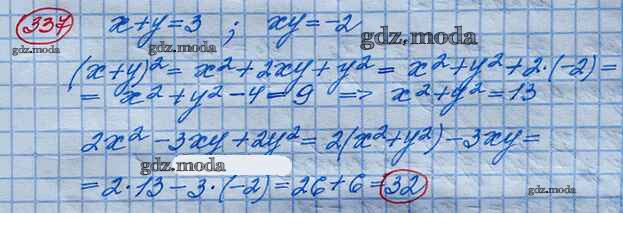 337 x+y=3 ; xy=-2
gdz.moda gdz.moda
(x+y)²= x²+2xy+y²= x²+y²+2·(-2)=
= x²+y²-4=9 => x²+y²=13
gdz.moda
2x²-3xy+2y²=2(x²+y²)-3xy=
gdz.moda
=2·13-3·(-2)=26+6=32
gdz.moda